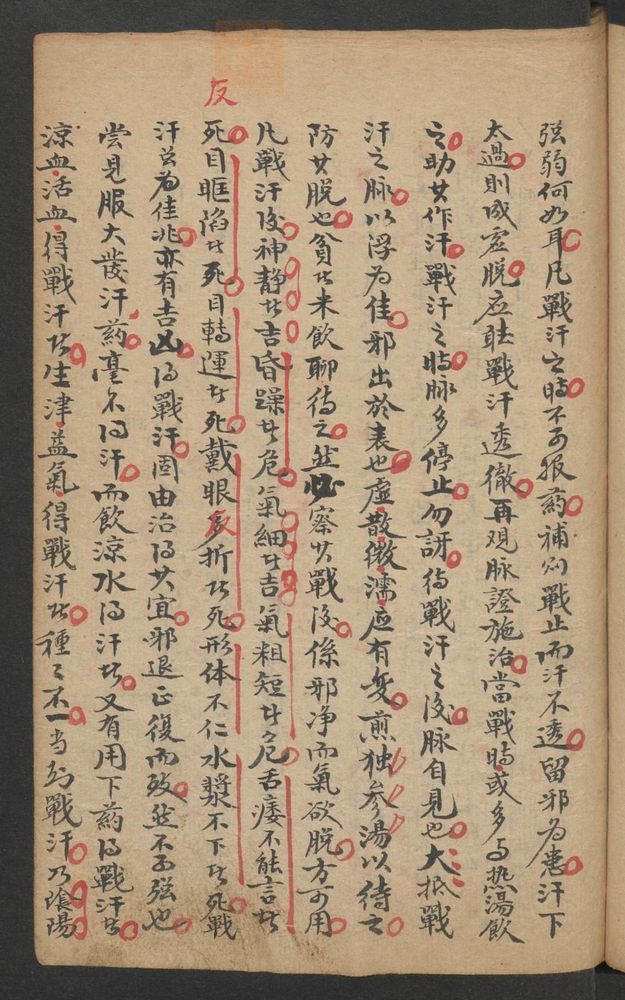 强弱何如耳凡戰汗之時不可服药補則戰止而汗不透留邪為患汗下
太過則成虚脱应聴戰汗透徹再观脉證施治當戰時或多与热湯飲
之助其作汗戰汗之時脉多停止勿訝待戰汗之後脉自見也大抵戰
汗之脉以浮为佳邪出於表也虚散微濡应有变煎独参湯以待之
防其脱也貧者米飲聊待之然必察其戰後係邪净而氣欲脱方可用
凡戰汗後神静者吉昏躁者危氣細者吉氣粗短者危舌痿不能言者
死目眶陷者死目轉運者死戴眼反折者死形体不仁水漿不下者死戰
反
汗㫮为佳兆亦有吉凶得戰汗固由治得其宜邪退正復而致然不可强也
嘗見服大發汗药毫不得汗而飲涼水得汗者又有用下药得戰汗者
涼血活血得戰汗者生津益氣得戰汗者種々不一当知戰汗乃陰陽